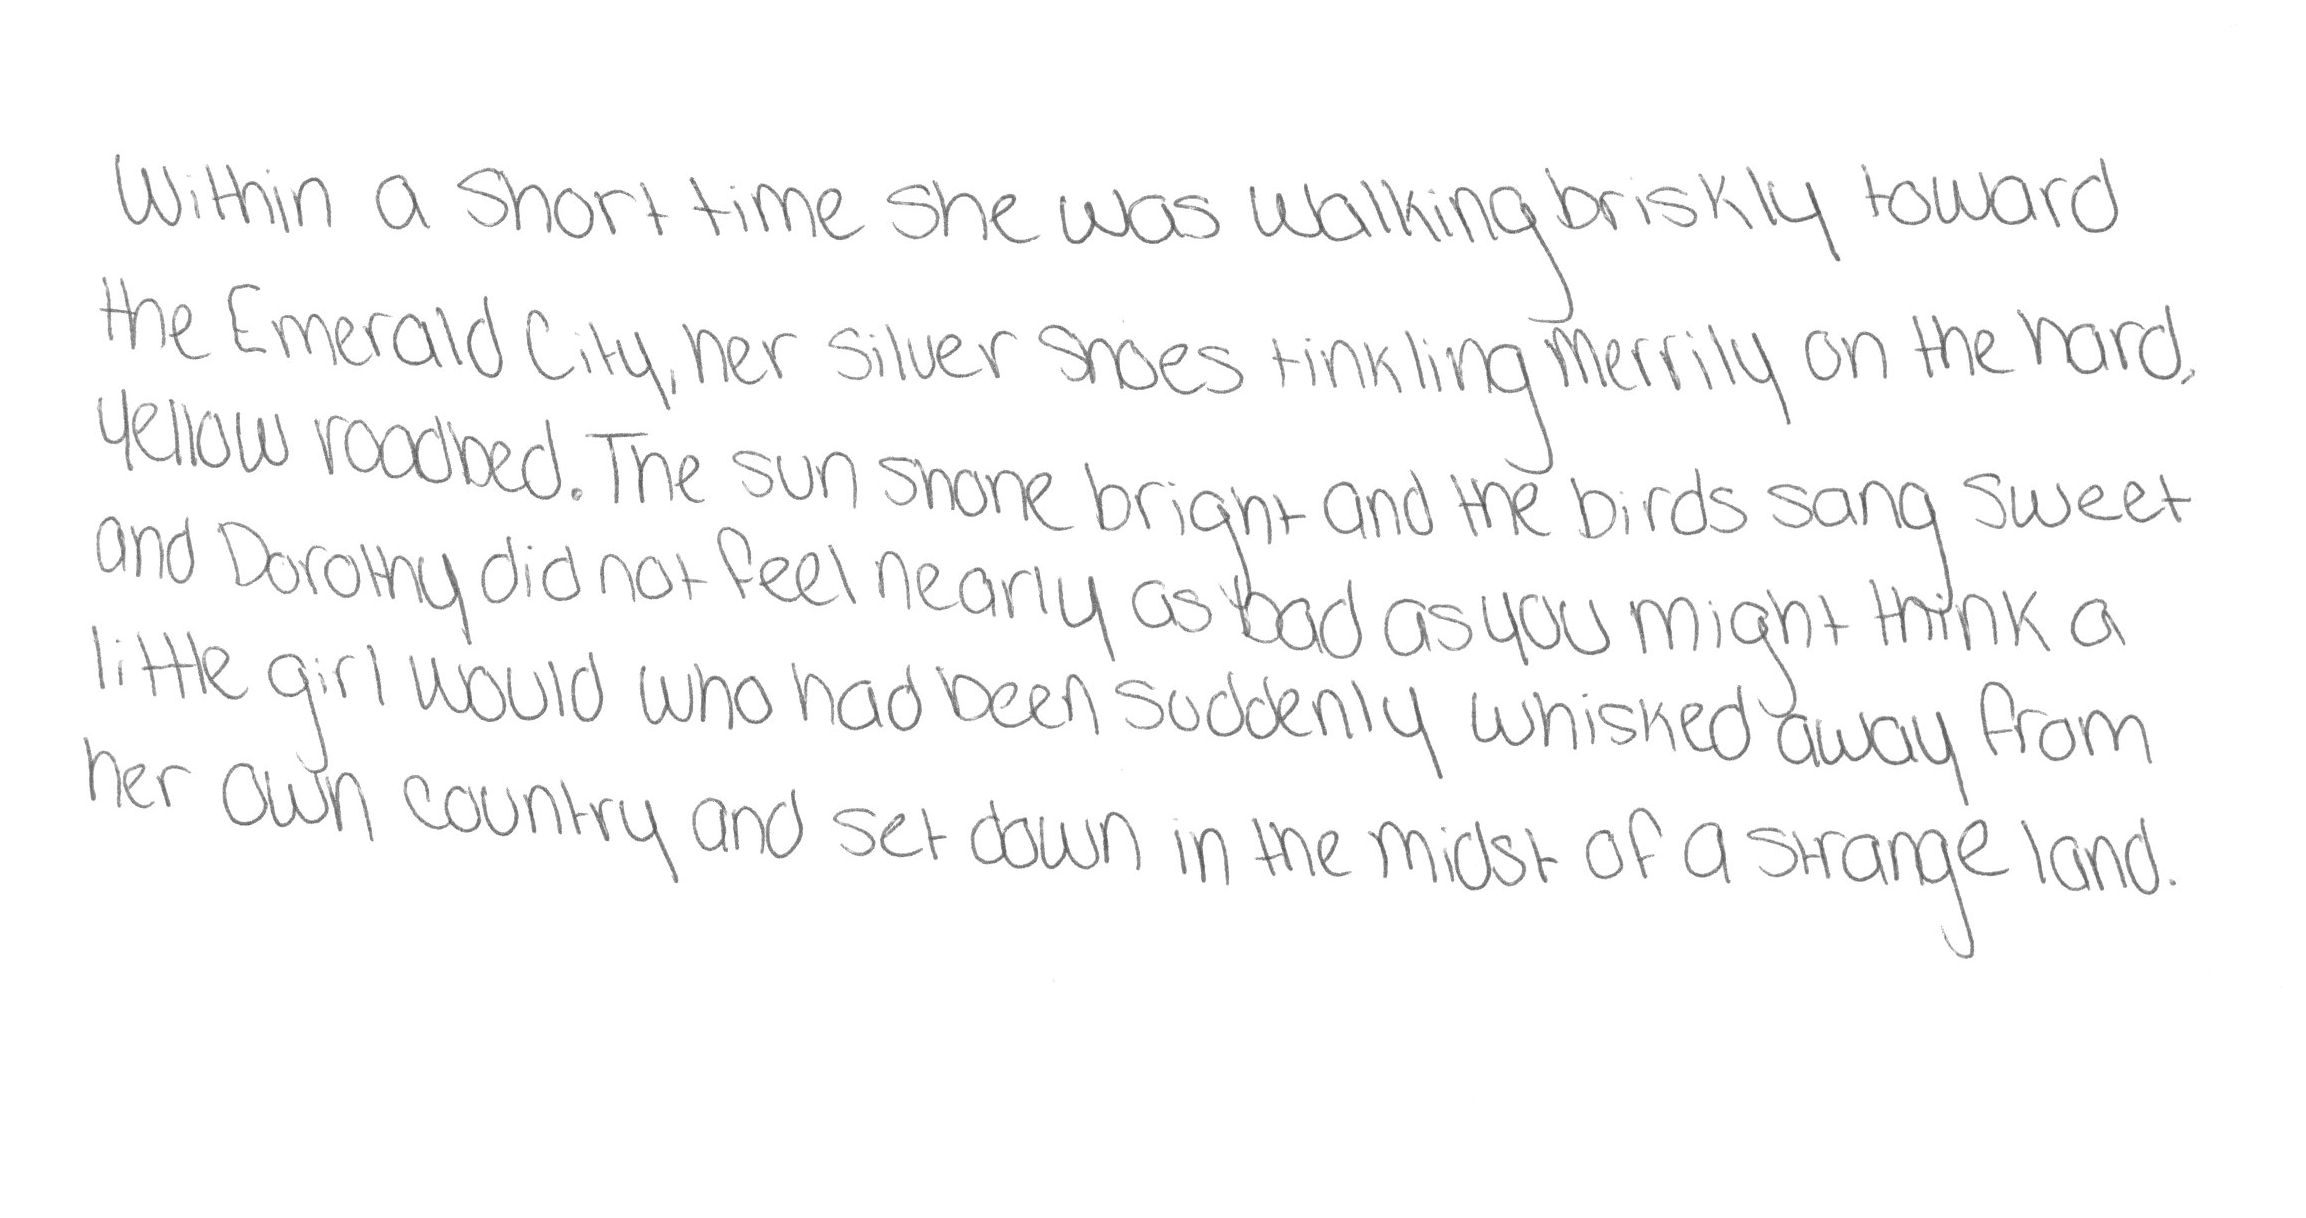 Within a short time she was walking briskly toward
the Emerald City, her silver shoes tinkling merrily on the hard,
yellow roadbed. The sun shone bright and the birds sang sweet
and Dorothy did not feel nearly as bad as you might think a
little girl would who had been suddenly whisked away from
her own country and set down in the midst of a strange land.